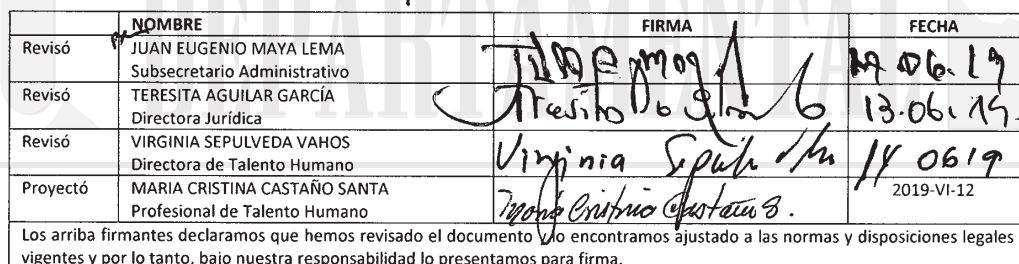 DEPARTAMENTAL
NOMBRE FIRMA FECHA
Revisó JUAN EUGENIO MAYA LEMA
Subsecretario Administrativo
Revisó TERESITA AGUILAR GARCÍA
Directora Jurídica 13.06.19
Revisó VIRGINIA SEPULVEDA VAHOS
Directora de Talento Humano Virginia 14 0619
Proyectó MARIA CRISTINA CASTAÑO SANTA 2019-VI-12
Profesional de Talento Humano Maria Cristina Castaño S.
Los arriba firmantes declaramos que hemos revisado el documento y lo encontramos ajustado a las normas y disposiciones legales
vigentes y por lo tanto, bajo nuestra responsabilidad lo presentamos para firma.